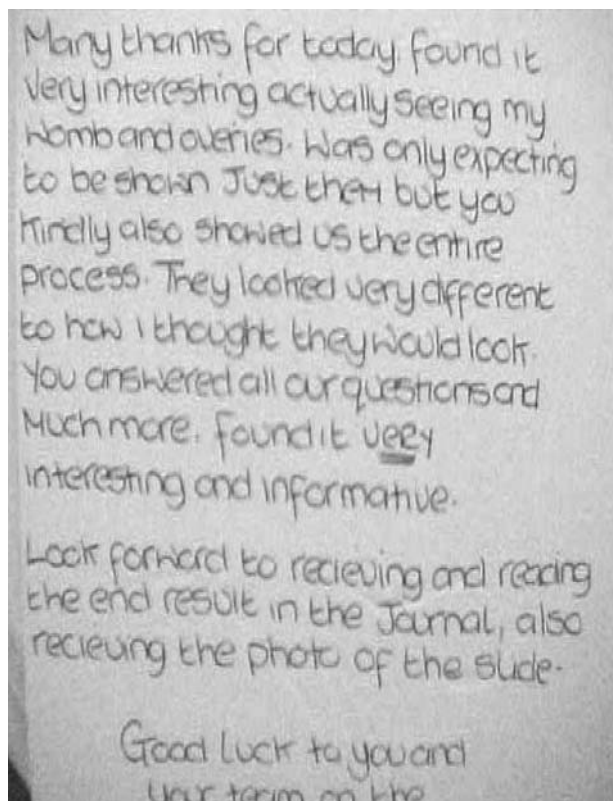 Many thanks for today, found it
very interesting actually seeing my
womb and overies. Was only expecting
to be shown Just them but you
kindly also showed us the entire
process. They looked very different
to how I thought they would look.
You answered all our questions and
Much more. found it veey
interesting and informative.
Look forward to recieving and reading
the end result in the Journal, also
recieving the photo of the slide.
Good luck to you and
your team on the